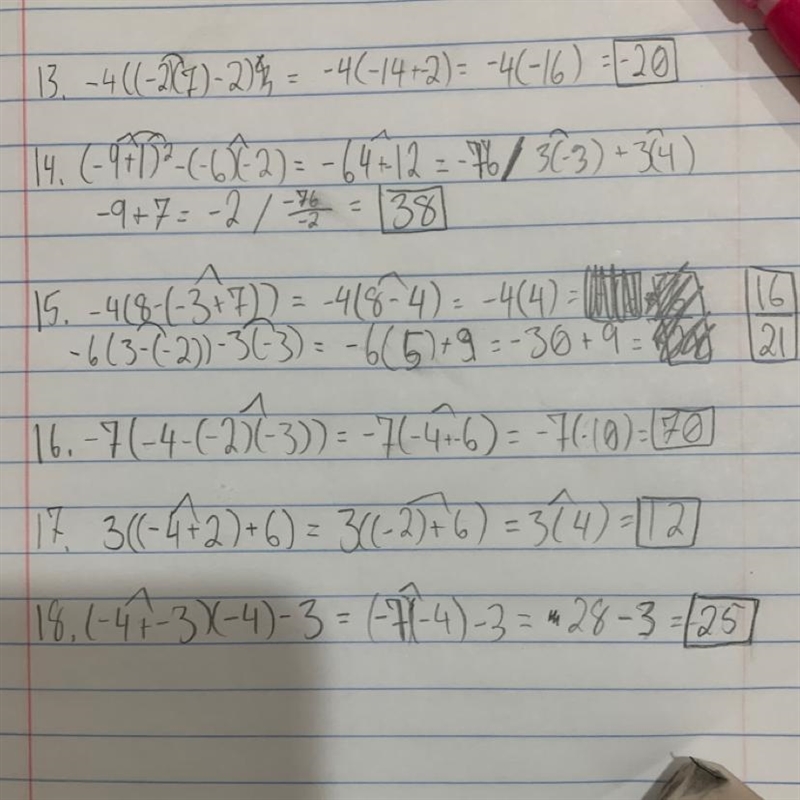 13. -4((-2)(7)-2) = -4(-14+-2) = -4(-16) = -20
14. (-9+1)² -(-6)(-2) = -64+-12 = -76 / 3(-3) + 3(4)
-9+7 = -2 / -76/-2 = 38
15. -4(8-(-3+7)) = -4(8-4) = -4(4) = 16/21
-6(3-(-2))-3(-3) = -6(5)+9 = -30+9 =
16. -7(-4-(-2)(-3)) = -7(-4+-6) = -7(-10) = 70
17. 3((-4+2)+6) = 3((-2)+6) = 3(4) = 12
18. (-4+-3)(-4)-3 = (-7)(-4)-3 = 28-3 = 25